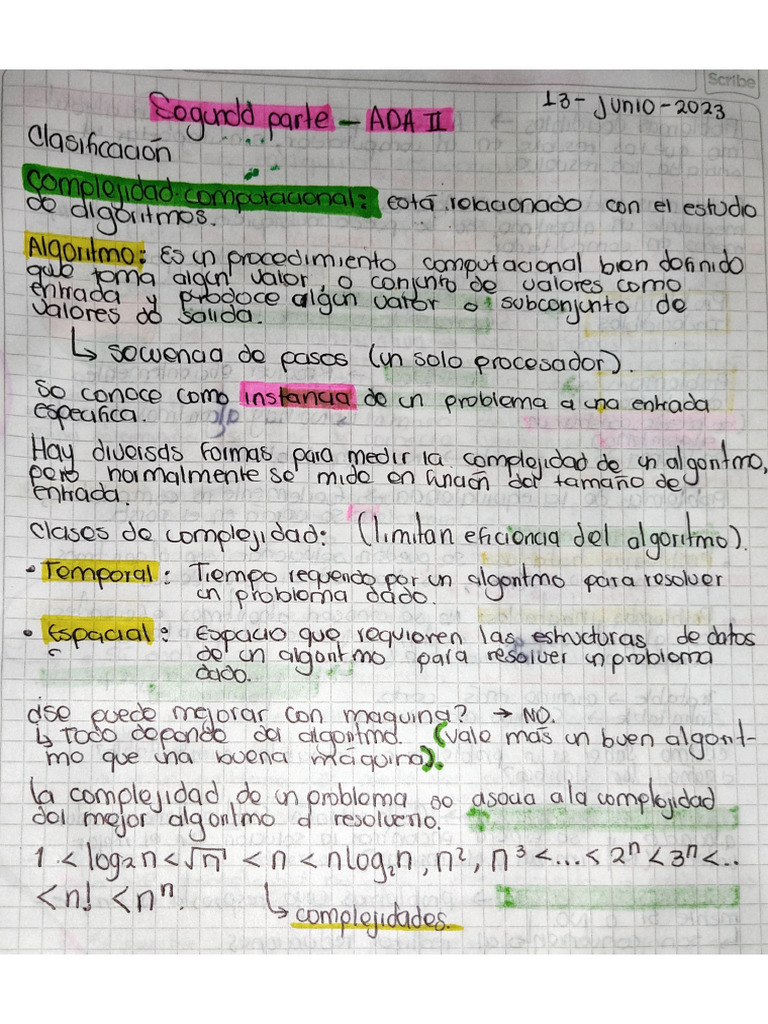 Scribe
13-Junio-2023
Segunda parte - ADA II
Clasificación
Complejidad computacional: está relacionado con el estudio
de algoritmos.
Algoritmo: Es un procedimiento computacional bien definido
que toma algún valor, o conjunto de valores como
entrada y produce algún valor o subconjunto de
valores de salida.
↳ secuencia de pasos (un solo procesador).
se conoce como instancia de un problema a una entrada
especifica.
Hay diversas formas para medir la complejidad de un algoritmo,
pero normalmente se mide en función del tamaño de
entrada.
Clases de complejidad: (limitan eficiencia del algoritmo).
• Temporal: Tiempo requerido por un algoritmo para resolver
un problema dado.
• Espacial: Espacio que requieren las estructuras de datos
de un algoritmo para resolver un problema
dado.
¿Se puede mejorar con maquina? → NO.
↳ Todo depende del algoritmo. (Vale más un buen algorit-
mo que una buena máquina).
la complejidad de un problema se asocia a la complejidad
del mejor algoritmo al resolverlo.
1 < log₂n < √n < n < nlog₂n, n², n³ < ... < 2ⁿ < 3ⁿ < ..
< n! < nⁿ.
↳ complejidades.